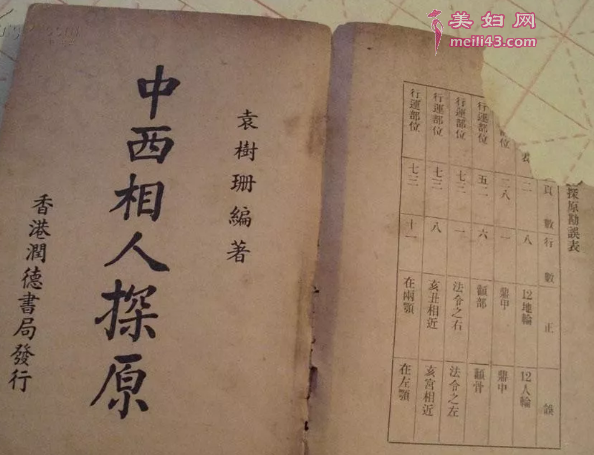 美妇网
meili43.com
袁樹珊編著
中西相人探原
香港潤德書局發行
探原勘誤表
頁數 行數 正 誤
八 12地輪 12人輪
部位 二八 一 鼎甲 鼎甲
行運部位 五二 六 顴部 顴骨
行運部位 七二 一 法令之右 法令之左
行運部位 七三 八 亥丑相近 亥宮相近
行運部位 七三 十一 在兩顎 在左顎